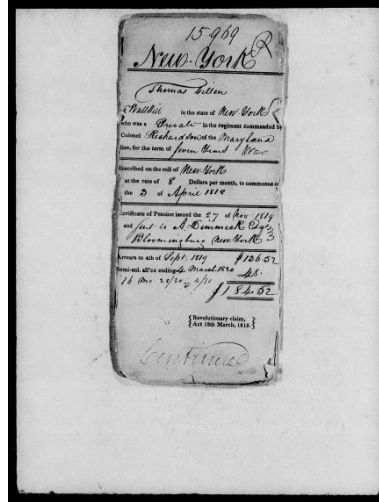 15969
New-York
Thomas Dillen
Wallkill in the state of New York
who was a Private in the regiment commanded by
Colonel Richardson of the Maryland
line, for the term of Seven Years War
Inscribed on the roll of New-York
at the rate of 8 Dollars per month, to commence on
the 3 of April 1818
Certificate of Pension issued the 27 of Nov 1819
and sent to A. Dimmick Esqr
Bloomingburg New York
Arrears to 4th of Sept. 1819 $136.52
Semi-anl. all'ce ending 4 March 1820 48.
16 Mo 28/30
$184.52
{Revolutionary claim,}
{Act 18th March, 1818.}
Continued